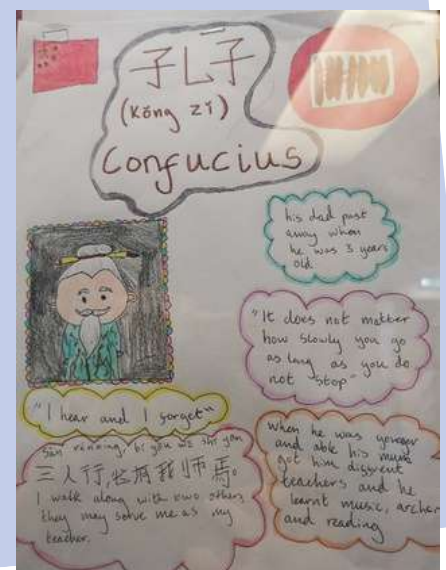 孔子
(Kǒng zǐ)
Confucius
his dad past
away when
he was 3 years
old
"It does not matter
how slowly you go
as long as you do
not stop"
"I hear and I forget"
三人行,必有我师焉。
I walk along with two others,
they may serve me as my
teacher.
When he was younger
and able his mum
got him different
teachers and he
learnt music, archer
and reading